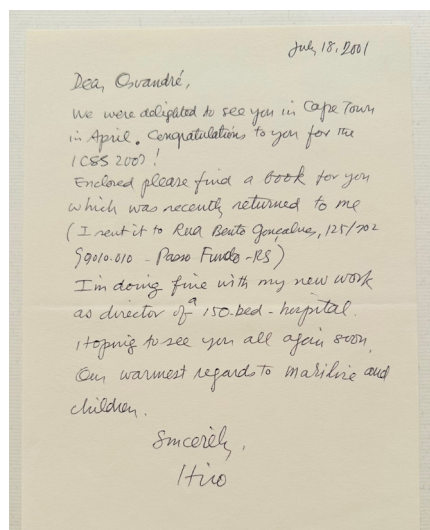 July 18, 2001
Dear Osvandré,
We were delighted to see you in Cape Town
in April. Congratulations to you for the
ICSS 2007!
Enclosed please find a book for you
which was recently returned to me
(I sent it to Rua Bento Gonçalves, 125/702
99010.010 - Passo Fundo - RS)
I'm doing fine with my new work
as director of a 150-bed-hospital.
Hoping to see you all again soon.
Our warmest regards to Marilise and
children.
Sincerely,
Hiro